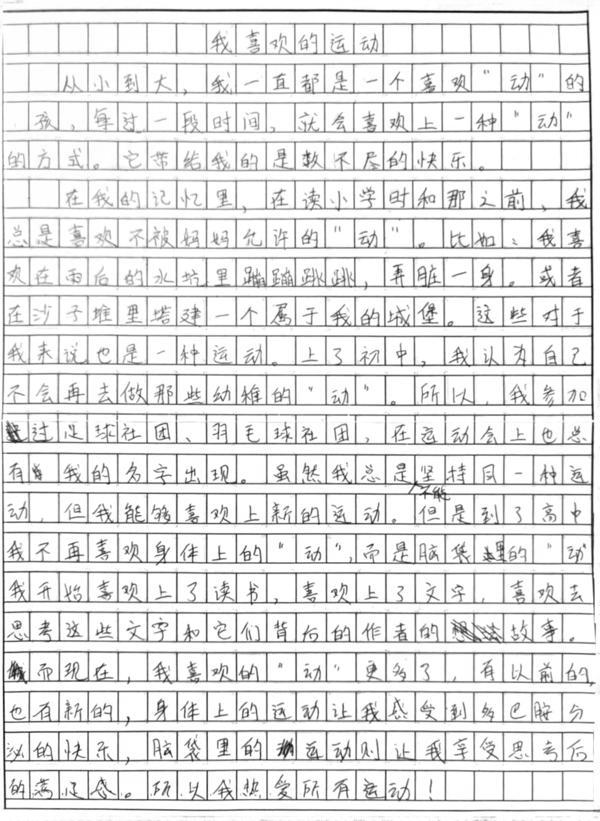 我喜欢的运动
从小到大，我一直都是一个喜欢“动”的
孩，每过一段时间，就会喜欢上一种“动”
的方式。它带给我的是数不尽的快乐。
在我的记忆里，在读小学时和那之前，我
总是喜欢不被妈妈允许的“动”。比如：我喜
欢在雨后的水坑里蹦蹦跳跳，弄脏一身。或者
在沙子堆里塔建一个属于我的城堡。这些对于
我来说也是一种运动。上了初中，我认为自己
不会再去做那些幼稚的“动”。所以，我参加
过足球社团、羽毛球社团，在运动会上也总
有我的名字出现。虽然我总是不能坚持同一种运
动，但我能够喜欢上新的运动。但是到了高中
我不再喜欢身体上的“动”，而是脑袋里的“动”
我开始喜欢上了读书，喜欢上了文字，喜欢去
思考这些文字和它们背后的作者的故事。
而现在，我喜欢的“动”更多了，有以前的，
也有新的，身体上的运动让我感受到多巴胺分
泌的快乐，脑袋里的运动则让我享受思考后
的满足感。所以我热爱所有运动！